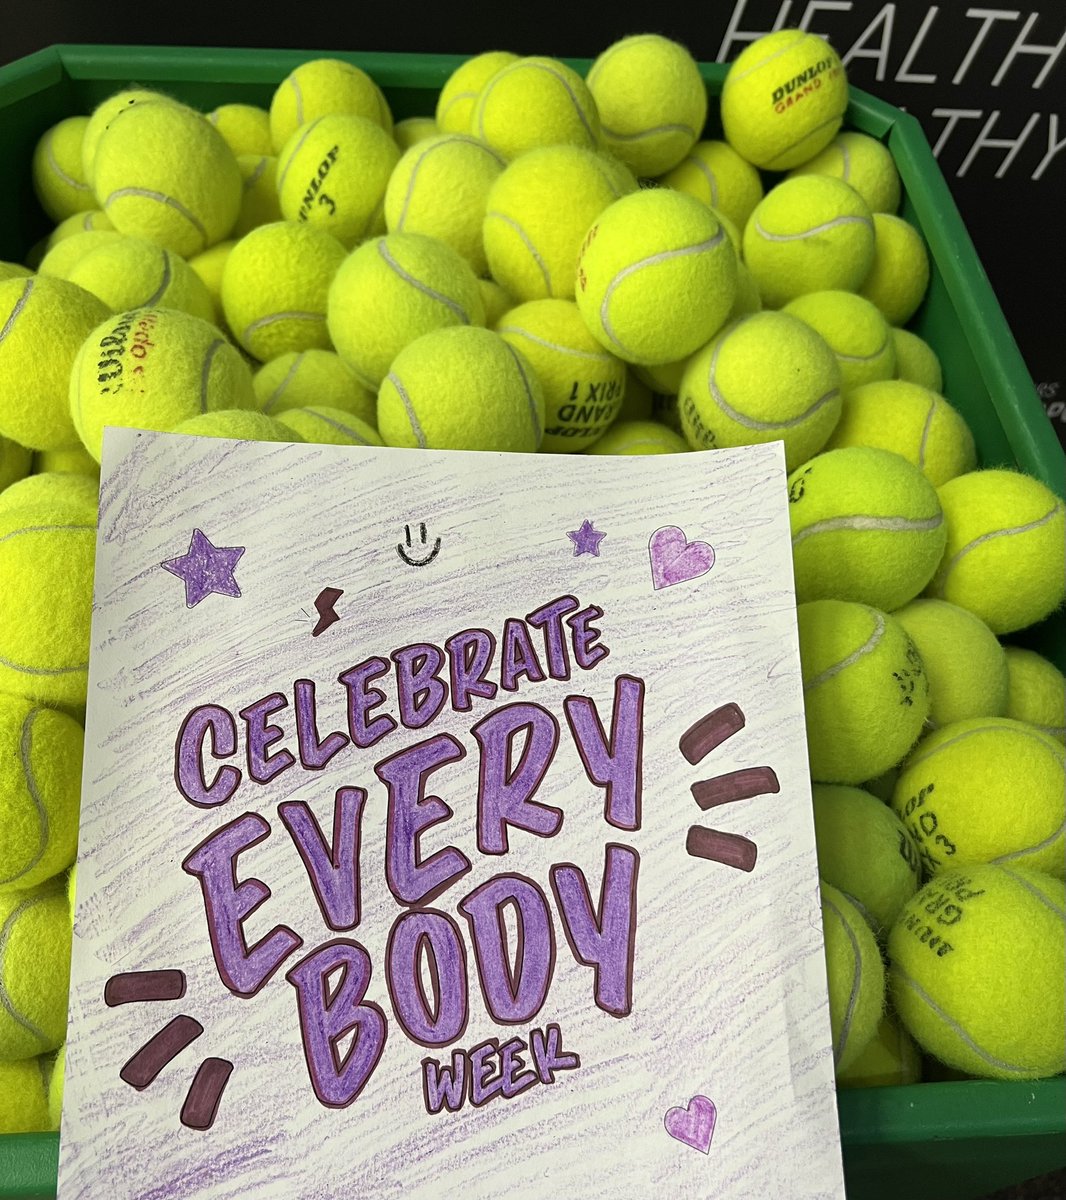 HEALTH
THY
DUNLOP
GRAND
DUNLOP
3
Wilson
GRAND
PRIX 1
CELEBRATE
EVERY
BODY
WEEK
DUNLOP
3
GRAND
PRIX